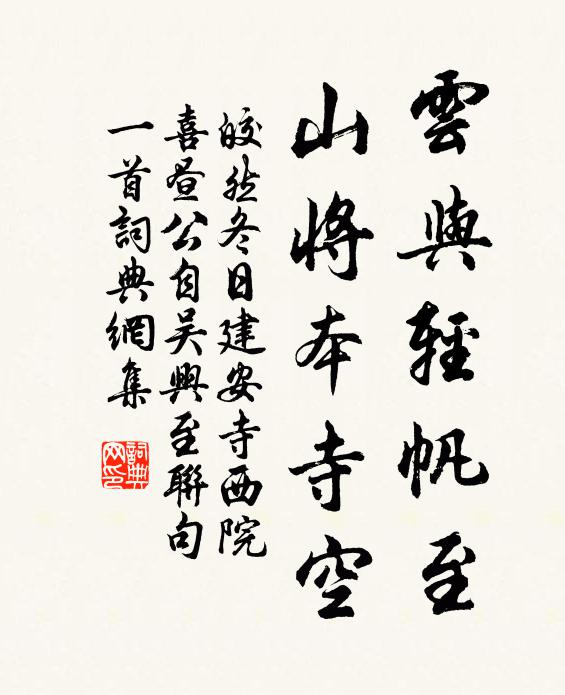 雲與輕帆至
山將本寺空
皎然冬日建安寺西院
喜晝公自吳興至聯句
一首詞典網集
詞典
网印